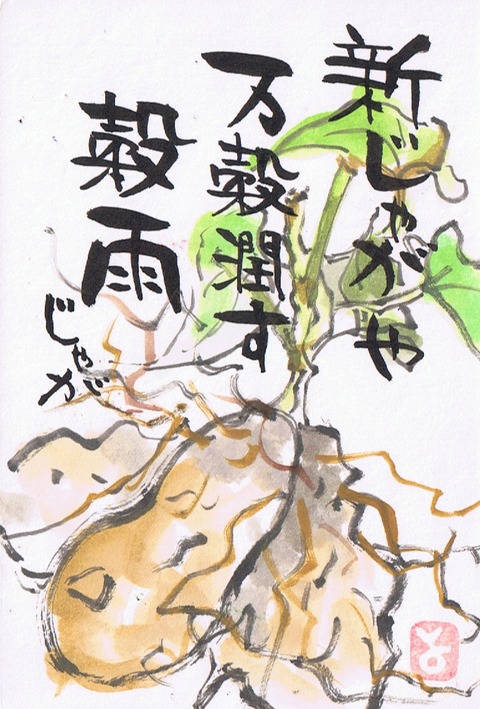 新じゃがや
万穀潤す
穀雨
じゃが